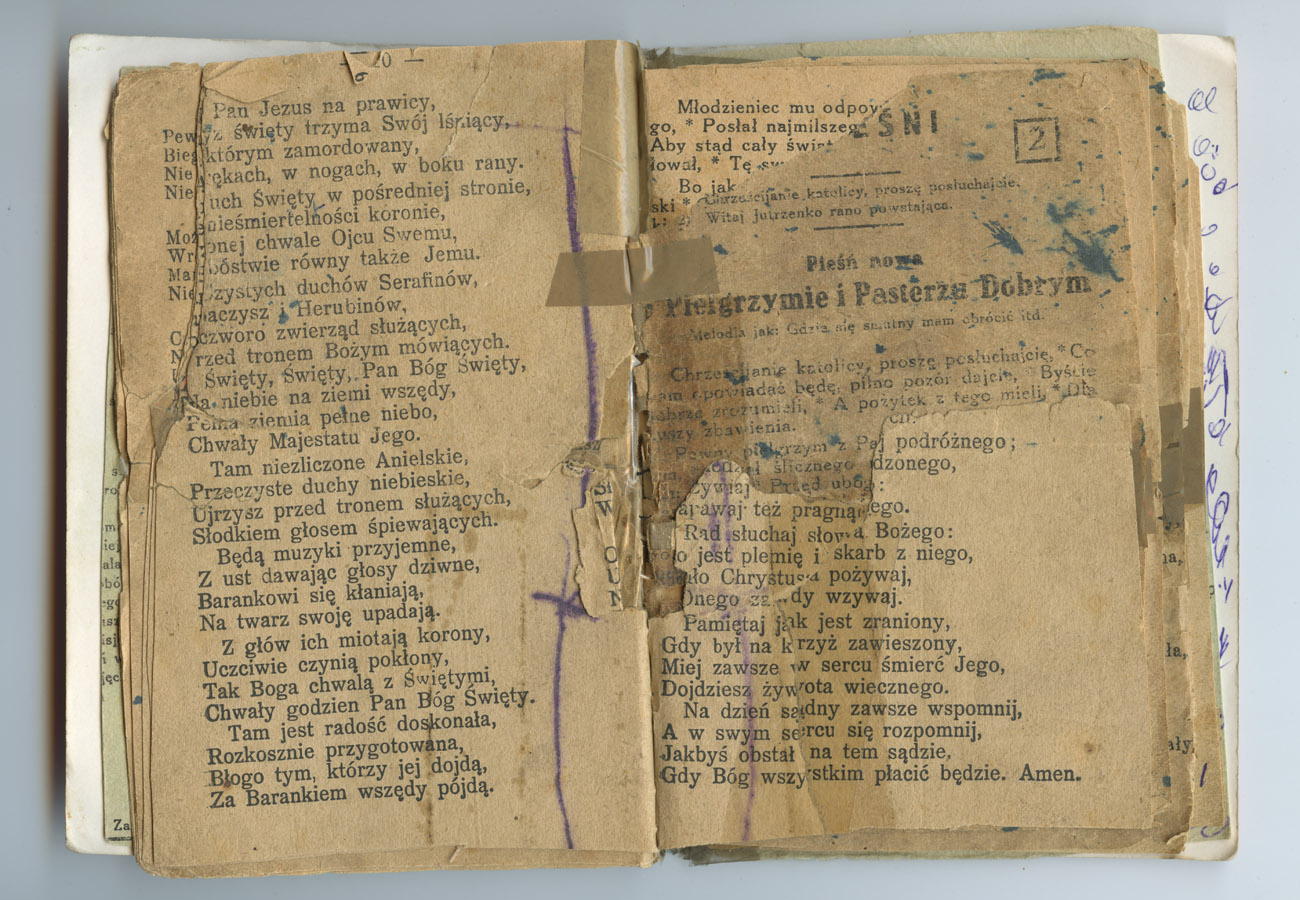 — 20 —
6
Pan Jezus na prawicy,
święty trzyma Swój lśniący,
którym zamordowany,
rękach, w nogach, w boku rany.
uch Święty w pośredniej stronie,
nieśmiertelności koronie,
onej chwale Ojcu Swemu,
bóstwie równy także Jemu.
zystych duchów Serafinów,
aczysz i Herubinów,
czworo zwierząd służących,
rzed tronem Bożym mówiących.
Święty, Święty, Pan Bóg Święty,
Na niebie na ziemi wszędy,
Pełna ziemia pełne niebo,
Chwały Majestatu Jego.
Tam niezliczone Anielskie,
Przeczyste duchy niebieskie,
Ujrzysz przed tronem służących,
Słodkiem głosem śpiewających.
Będą muzyki przyjemne,
Z ust dawając głosy dziwne,
Barankowi się kłaniają,
Na twarz swoję upadają.
Z głów ich miotają korony,
Uczciwie czynią pokłony,
Tak Boga chwalą z Świętymi,
Chwały godzien Pan Bóg Święty.
Tam jest radość doskonała,
Rozkosznie przygotowana,
Błogo tym, którzy jej dojdą,
Za Barankiem wszędy pójdą.
Pew
Bieg
Nie
Nie
Moż
Wr
Nie
Za
Młodzieniec mu odpow
go, * Posłał najmilszeg
Aby stąd cały świat
łował, * Tę
Bo jak
ski *
EŚNI
2
Chrześcijanie katolicy, proszę posłuchajcie.
Witaj jutrzenko rano powstająca.
Pieśń nowa
Pielgrzymie i Pasterzu Dobrym
Melodia jak: Gdzie się smutny mam obrócić itd.
Chrześcijanie katolicy, proszę posłuchajcie, * Co
am opowiadać będę, pilno pozór dajcie, * Byście
dobrze zrozumieli, * A pożytek z tego mieli, * Dla
uszy zbawienia.
Pewny pielgrzym z
podróżnego;
ślicznego
dzonego,
Przed
też pragnącego.
Rad słuchaj słowa Bożego:
jest plemię i skarb z niego,
Chrystusa pożywaj,
Onego zawdy wzywaj.
Pamiętaj jak jest zraniony,
Gdy był na krzyż zawieszony,
Miej zawsze w sercu śmierć Jego,
Dojdziesz żywota wiecznego.
Na dzień sądny zawsze wspomnij,
A w swym sercu się rozpomnij,
Jakbyś obstał na tem sądzie,
Gdy Bóg wszystkim płacić będzie. Amen.